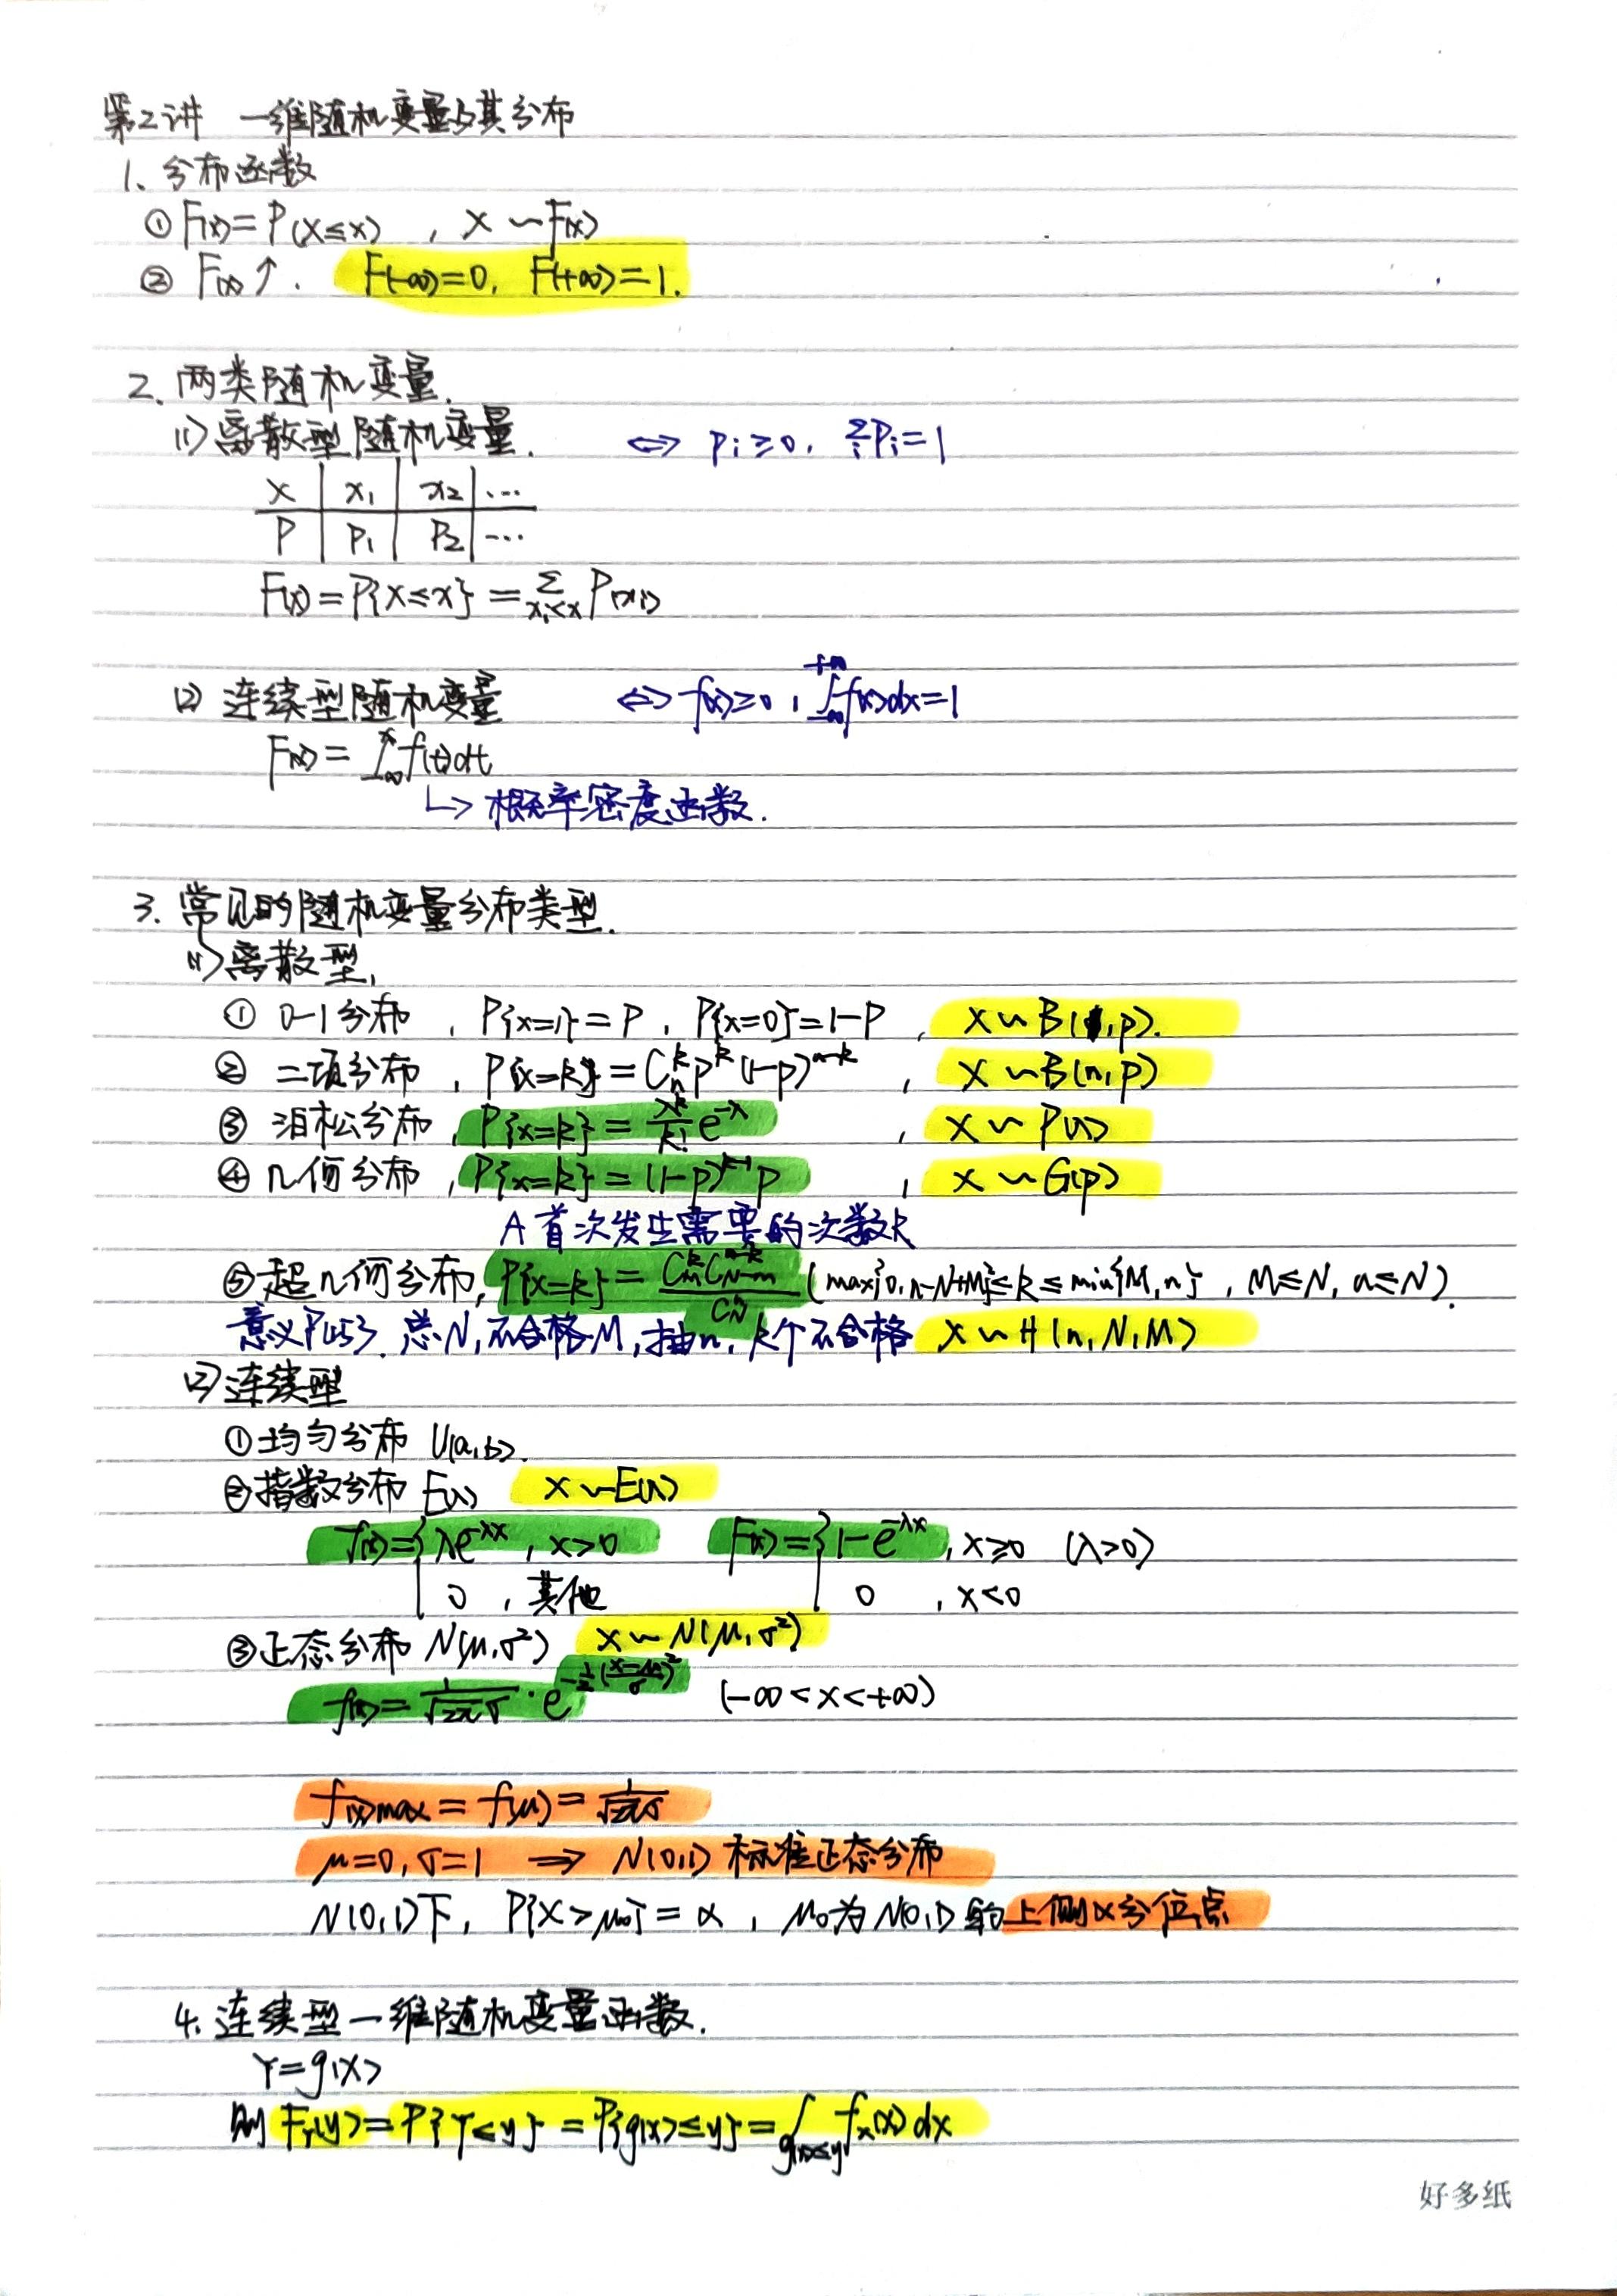 第二讲 一维随机变量与其分布
1、分布函数
① F(x)=P(X≤x) , X～F(x)
② F(x)↑. F(-∞)=0, F(+∞)=1.
2、两类随机变量.
(1)离散型随机变量. ⇔ Pi≥0, ΣPi=1
X | x₁ | x₂ | …
P | P₁ | P₂ | …
F(x)=P{X≤x}=Σ_{xi≤x} P(xi)
(2) 连续型随机变量 ⇔ f(x)≥0, ∫_{-∞}^{+∞} f(x)dx=1
F(x)=∫_{-∞}^{x} f(t)dt
↳ 概率密度函数.
3、常见的随机变量分布类型.
(1)离散型.
① 0-1分布 , P{X=1}=P, P{X=0}=1-P , X～B(1,p).
② 二项分布 , P{X=k}=C_n^k p^k (1-p)^{n-k} , X～B(n,p)
③ 泊松分布 , P{X=k}=\frac{λ^k}{k!}e^{-λ} , X～P(λ)
④ 几何分布 , P{X=k}=(1-p)^{k-1}p , X～G(p)
A首次发生需要的次数k
⑤超几何分布, P{X=k}=\frac{C_M^k C_{N-M}^{n-k}}{C_N^n} (max{0, n-N+M}≤k≤min{M,n}, M≤N, n≤N).
意义P(153. 总N,不合格M,抽n, k个不合格 X～H(n,N,M)
(2)连续型
①均匀分布 U(a,b).
②指数分布 E(λ) X～E(λ)
f(x)={λe^{-λx}, x>0 F(x)={1-e^{-λx}, x≥0 (λ>0)
0 , 其他 0 , x<0
③正态分布 N(μ,σ²) X～N(μ,σ²)
f(x)=\frac{1}{\sqrt{2π}σ}·e^{-\frac{1}{2}(\frac{x-μ}{σ})²} (-∞<x<+∞)
f(x)max=f(μ)=\frac{1}{\sqrt{2π}σ}
μ=0,σ=1 ⟹ N(0,1) 标准正态分布
N(0,1)下, P{X>μ₀}=α, μ₀为N(0,1)的上侧α分位点
4、连续型一维随机变量函数.
Y=g(X)
则 F_Y(y)=P{Y≤y}=P{g(X)≤y}=∫_{g(x)≤y} f_X(x)dx
好多纸